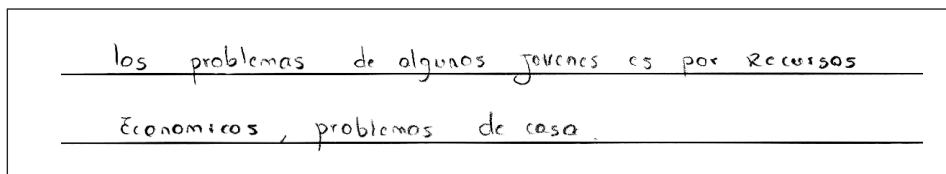 los problemas de algunos jovenes es por Recursos
Economicos, problemas de casa.